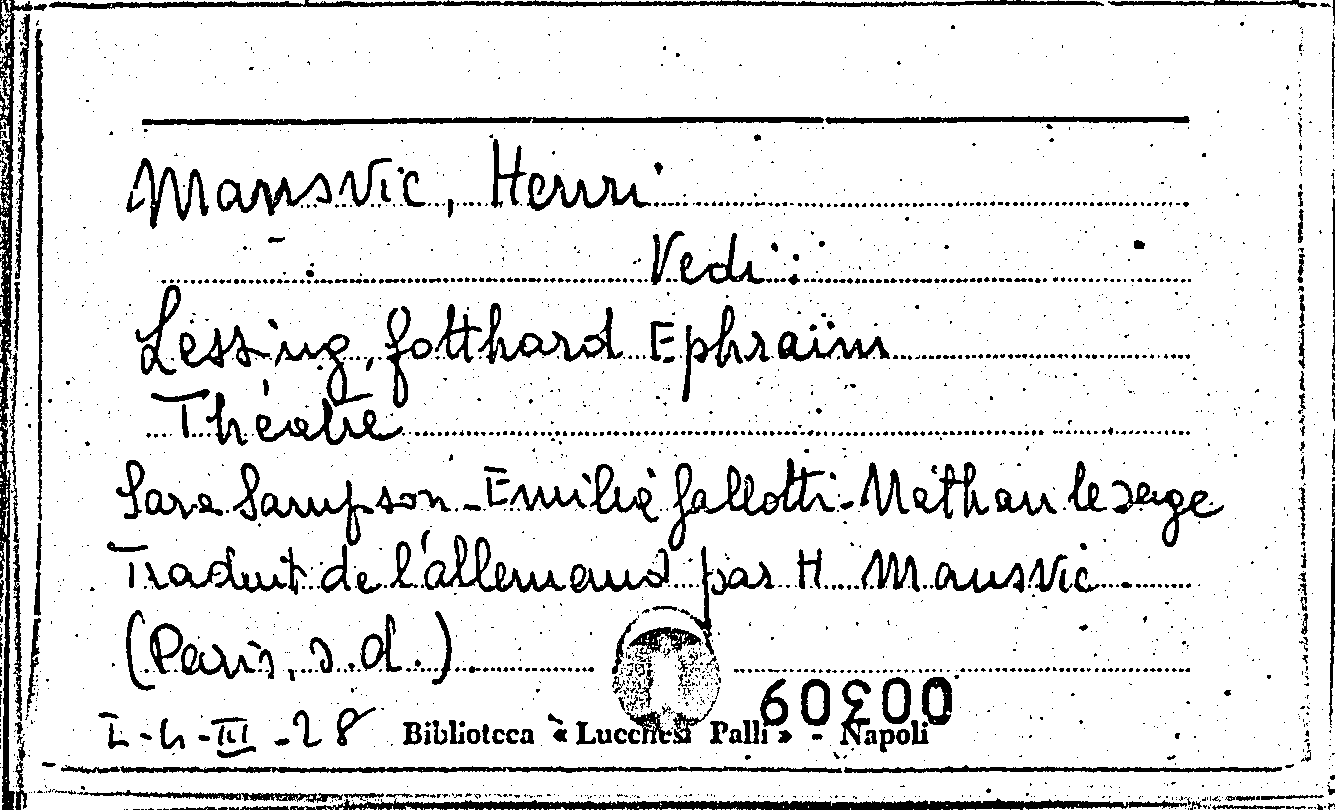 Mansvic, Henri
Vedi:
Lessing, Gotthard Ephraim
Théatre
Sara Sampson - Emilie Gallotti - Nathan le sage
Traduit de l'allemand par H Mansvic
(Paris, s.d.)
I-4-III-28 Biblioteca « Lucchesi Palli » - Napoli